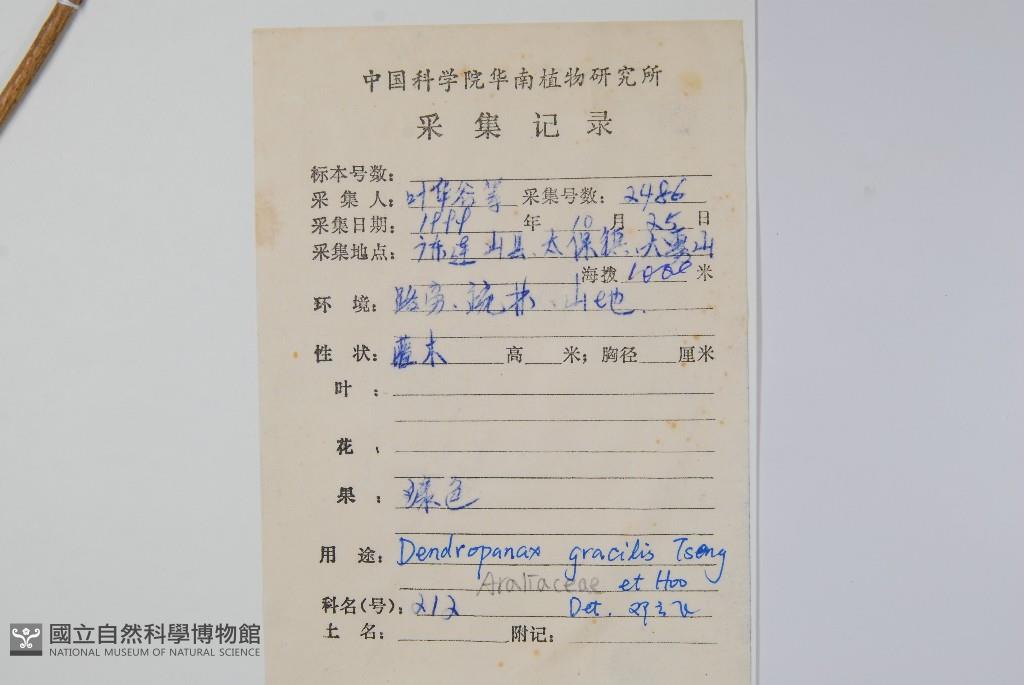 中国科学院华南植物研究所
采集记录
标本号数:
采集人: 叶华谷等 采集号数: 2486
采集日期: 1999 年 10 月 25 日
采集地点: 连山县、太保镇、大雾山
海拨 1000 米
环境: 路旁、疏林、山地.
性状: 灌木 高 米; 胸径 厘米
叶:
花:
果: 绿色
用途: Dendropanax gracilis Tseng
Araliaceae et Hoo
科名(号): 212 Det.
土名: 附记:
國立自然科學博物館
NATIONAL MUSEUM OF NATURAL SCIENCE